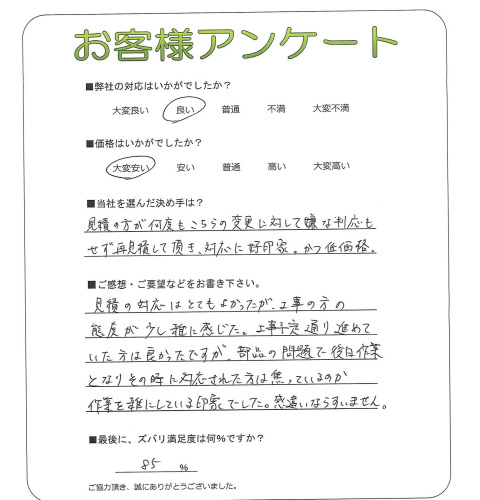 お客様アンケート
■弊社の対応はいかがでしたか？
大変良い 良い 普通 不満 大変不満
■価格はいかがでしたか？
大変安い 安い 普通 高い 大変高い
■当社を選んだ決め手は？
見積の方が何度もこちらの変更に対して嫌な対応も
せず再見積して頂き、対応に好印象。かつ低価格。
■ご感想・ご要望などをお書き下さい。
見積の対応はとてもよかったが、工事の方の
態度が少し雑に感じた。工事予定通り進めて
いた方は良かったですが、部品の問題で後日作業
となりその時に対応された方は焦っているのか
作業を雑にしている印象でした。感違いならすいません。
■最後に、ズバリ満足度は何%ですか？
85 %
ご協力頂き、誠にありがとうございました。